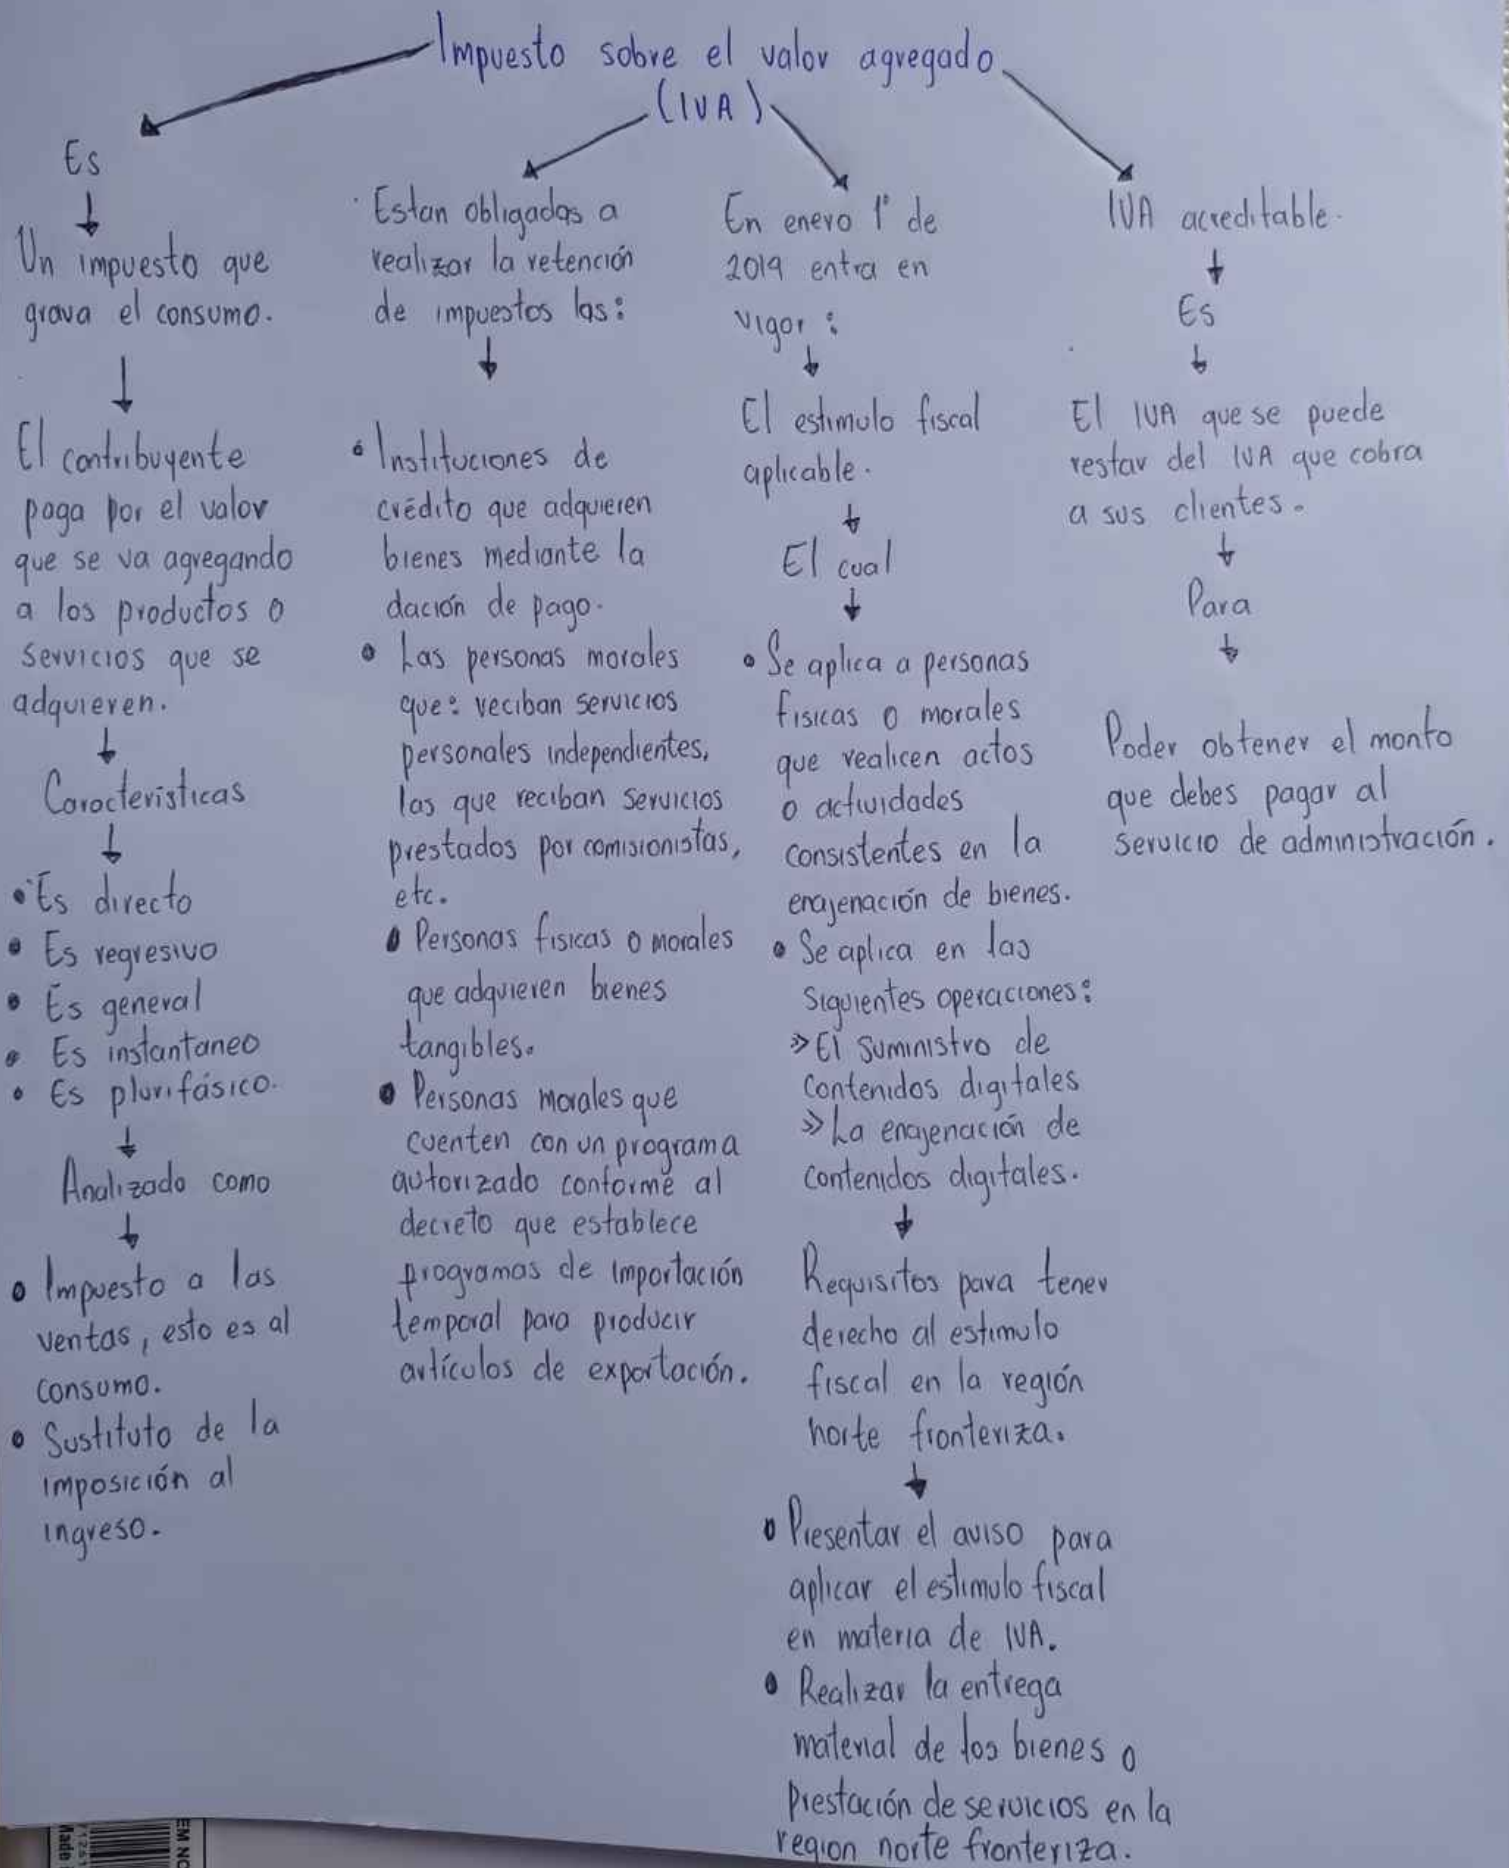 Impuesto sobre el valor agregado
(IVA)
Es
Un impuesto que
grava el consumo.
El contribuyente
paga por el valor
que se va agregando
a los productos o
servicios que se
adquieren.
Caracteristicas
• Es directo
• Es regresivo
• Es general
• Es instantaneo
• Es plurifásico.
Analizado como
• Impuesto a las
ventas, esto es al
consumo.
• Sustituto de la
imposición al
ingreso.
Estan obligadas a
realizar la retención
de impuestos las:
• Instituciones de
crédito que adquieren
bienes mediante la
dación de pago.
• Las personas morales
que: reciban servicios
personales independientes,
las que reciban servicios
prestados por comisionistas,
etc.
• Personas fisicas o morales
que adquieren bienes
tangibles.
• Personas morales que
cuenten con un programa
autorizado conforme al
decreto que establece
programas de importación
temporal para producir
artículos de exportación.
En enero 1° de
2019 entra en
vigor:
El estimulo fiscal
aplicable.
El cual
• Se aplica a personas
fisicas o morales
que realicen actos
o actividades
consistentes en la
enajenación de bienes.
• Se aplica en las
siguientes operaciones:
» El suministro de
contenidos digitales
» La enajenación de
contenidos digitales.
Requisitos para tener
derecho al estimulo
fiscal en la región
norte fronteriza.
• Presentar el aviso para
aplicar el estimulo fiscal
en materia de IVA.
• Realizar la entrega
material de los bienes o
prestación de servicios en la
region norte fronteriza.
IVA acreditable.
Es
El IVA que se puede
restar del IVA que cobra
a sus clientes.
Para
Poder obtener el monto
que debes pagar al
servicio de administración.